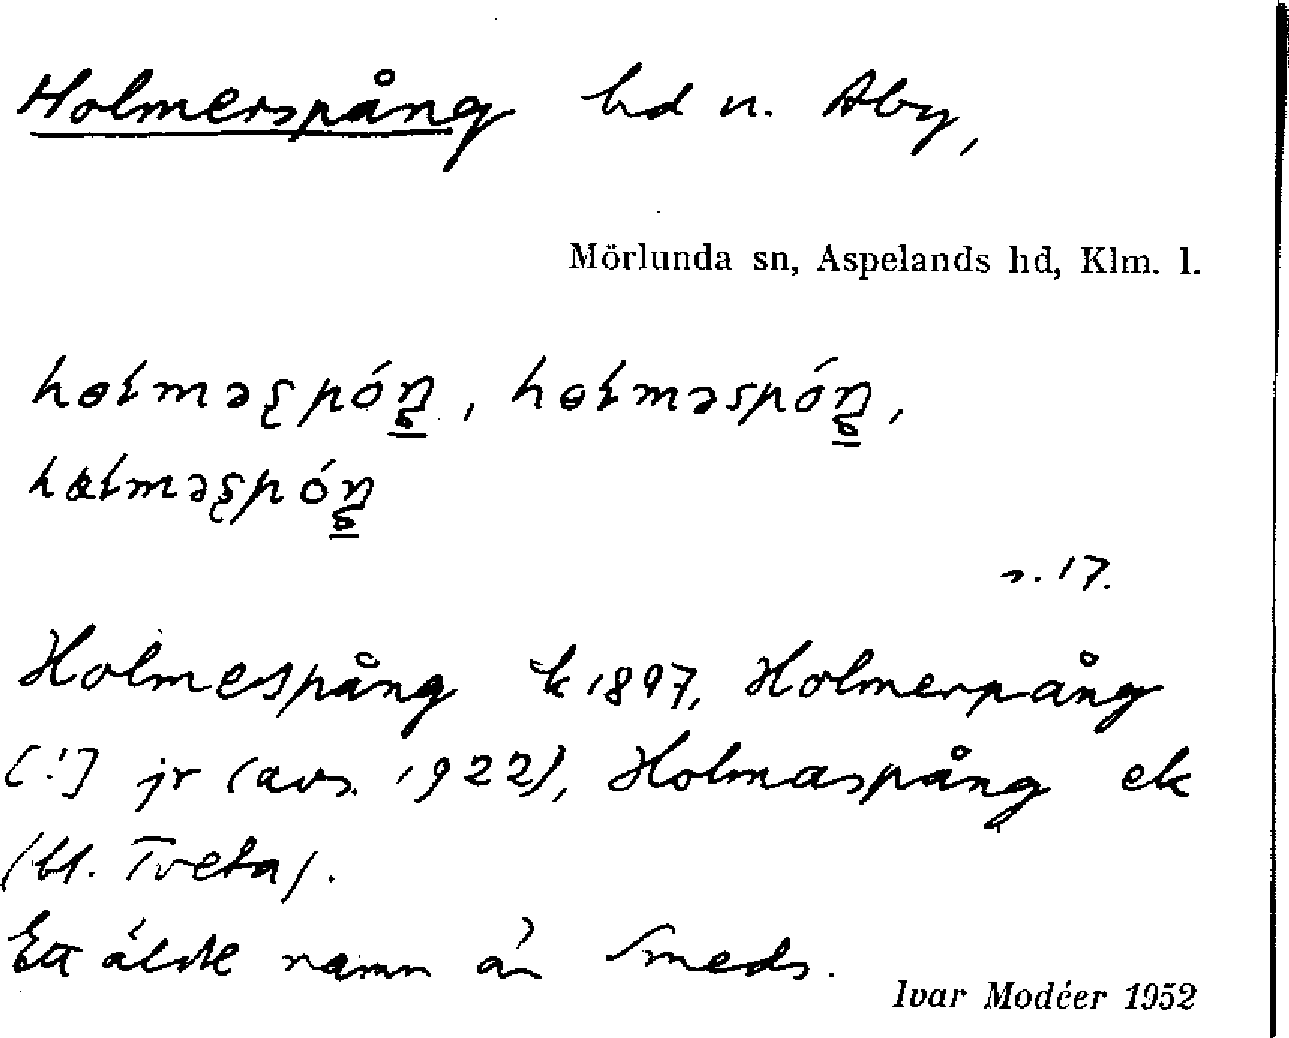 Holmerspång hd u. Åby,
Mörlunda sn, Aspelands hd, Klm. l.
s. 17.
Holmespång k 1897, Holmerpång
[!] jr (avs. 1922), Holmaspång ek
(bl. Tveta).
Ett äldre namn är Smeds.
Ivar Modéer 1952